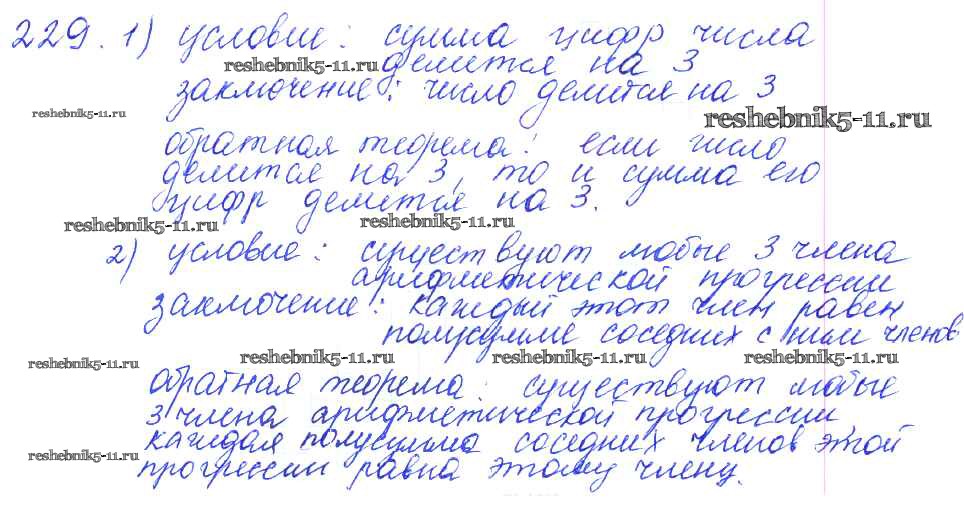 229. 1) условие: сумма цифр числа
делится на 3
reshebnik5-11.ru
заключение: число делится на 3
reshebnik5-11.ru
reshebnik5-11.ru
обратная теорема: если число
делится на 3, то и сумма его
цифр делится на 3.
reshebnik5-11.ru reshebnik5-11.ru
2) условие: существуют любые 3 члена
арифметической прогрессии
заключение: каждый этот член равен
полусумме соседних с ним членов
reshebnik5-11.ru reshebnik5-11.ru reshebnik5-11.ru reshebnik5-11.ru
обратная теорема: существуют любые
3 члена арифметической прогрессии
каждая полусумма соседних членов этой
reshebnik5-11.ru
прогрессии равна этому члену.